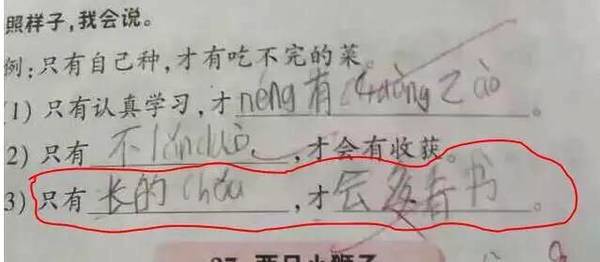 照样子,我会说。
例:只有自己种,才有吃不完的菜。
(1) 只有认真学习,才néng有chuàng zào。
2) 只有不lǎnduò,才会有收获。
3) 只有长的chǒu,才会多看书。
27 两只小狮子